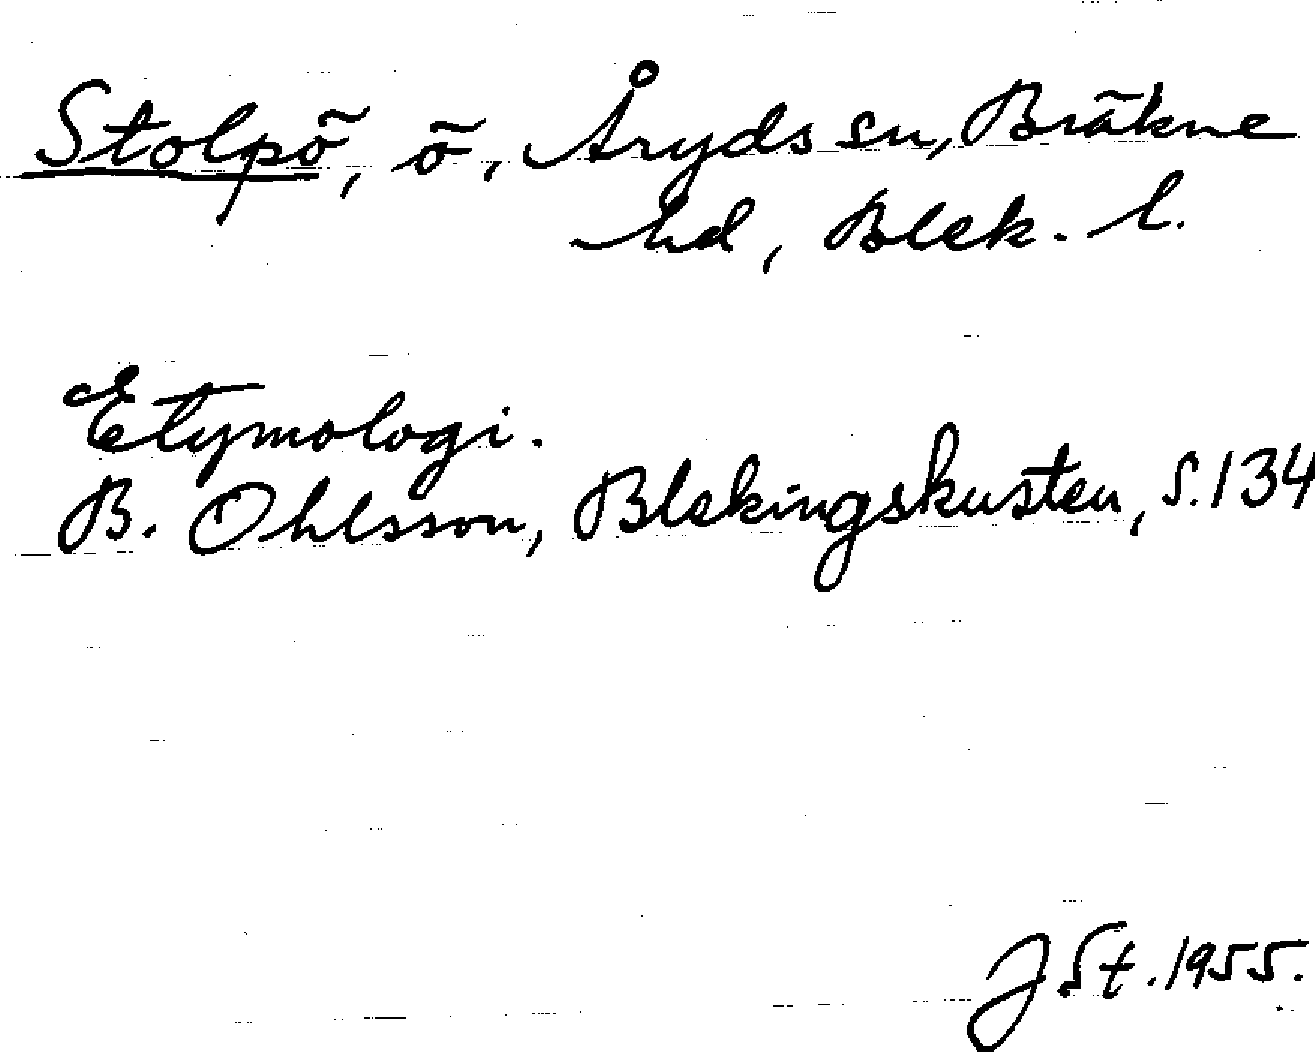 Stolpö, ö, Åryds sn, Bräkne
hd, Blek. l.
Etymologi.
B. Ohlsson, Blekingskusten, s. 134
JSt. 1955.